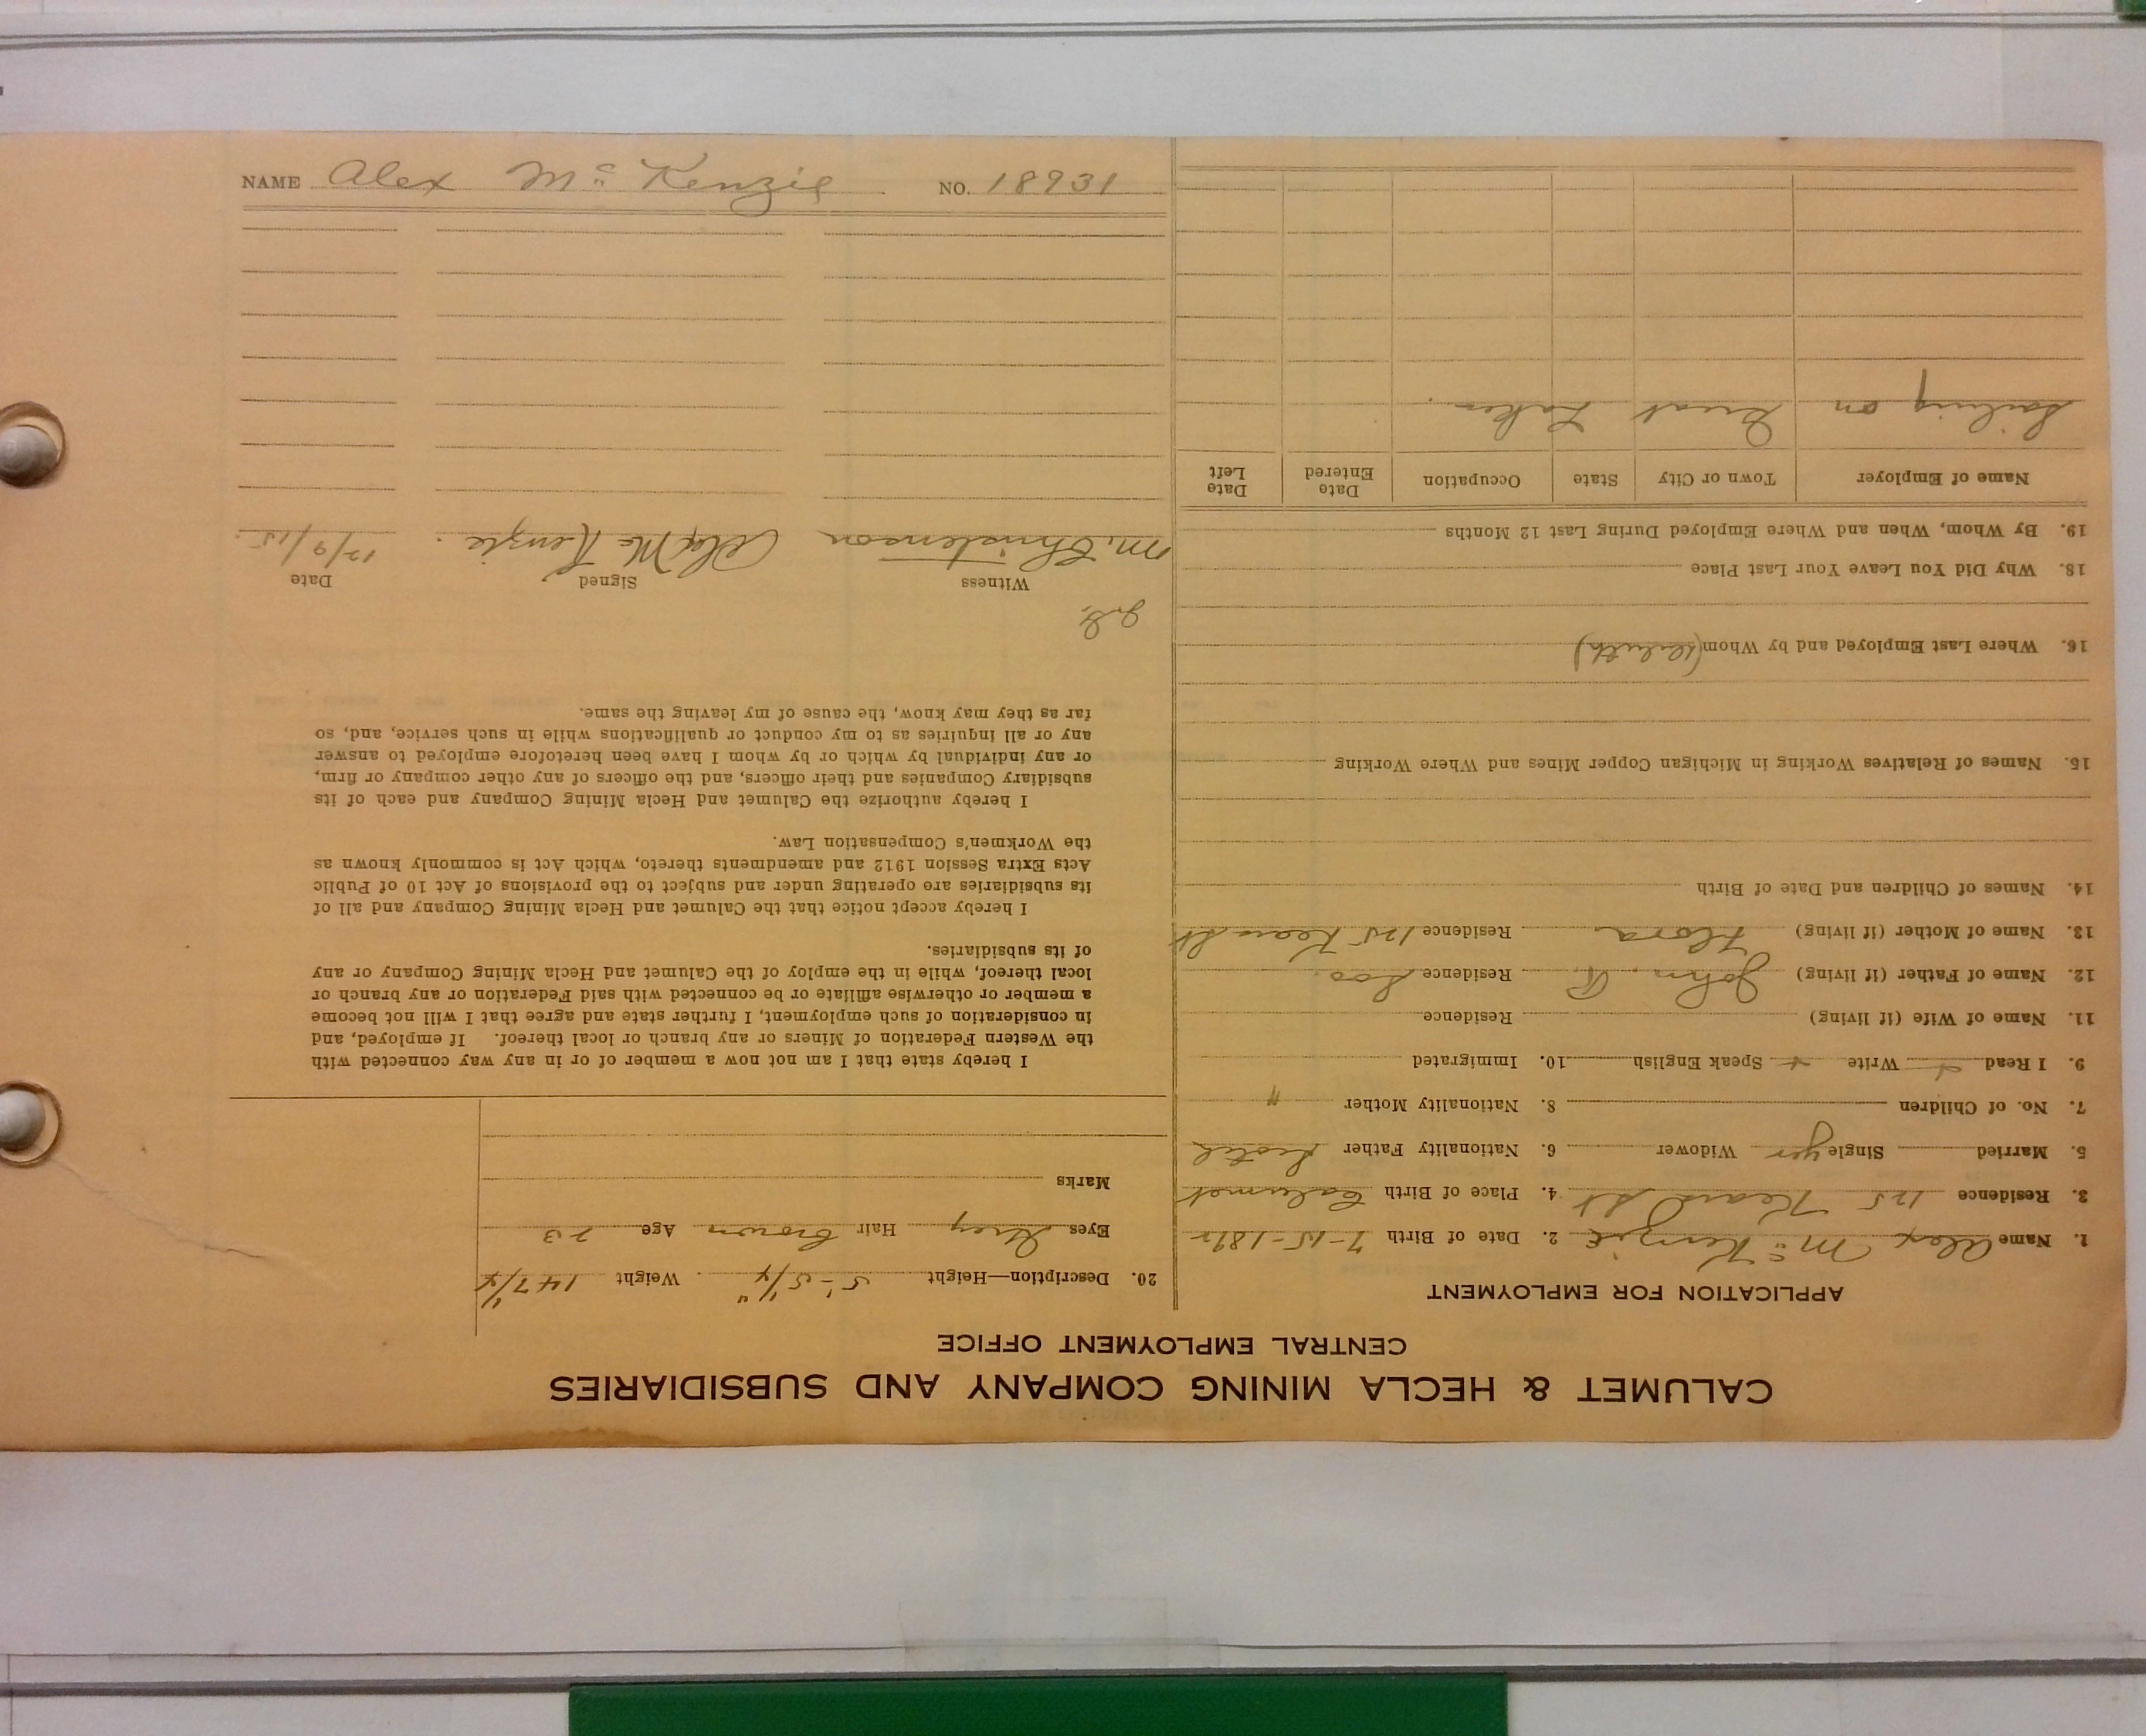 CALUMET & HECLA MINING COMPANY AND SUBSIDIARIES
CENTRAL EMPLOYMENT OFFICE
APPLICATION FOR EMPLOYMENT
1. Name Alex McKenzie 2. Date of Birth 7-15-1892
3. Residence 125 Kears St 4. Place of Birth Calumet
5. Married Single yes Widower 6. Nationality Father Scotch
7. No. of Children 8. Nationality Mother "
9. I Read Write Speak English 10. Immigrated
11. Name of Wife (if living) Residence
12. Name of Father (if living) John R. Residence Soo.
13. Name of Mother (if living) Flora Residence 125 Kears St
14. Names of Children and Date of Birth
15. Names of Relatives Working in Michigan Copper Mines and Where Working
16. Where Last Employed and by Whom (Duluth)
18. Why Did You Leave Your Last Place
19. By Whom, When and Where Employed During Last 12 Months
Name of Employer Town or City State Occupation Date Entered Date Left
Sailing on Great Lakes.
20. Description—Height 5'-5 1/4" Weight 147 1/4
Eyes Grey Hair Brown Age 23
Marks
I hereby state that I am not now a member of or in any way connected with
the Western Federation of Miners or any branch or local thereof. If employed, and
in consideration of such employment, I further state and agree that I will not become
a member or otherwise affiliate or be connected with said Federation or any branch or
local thereof, while in the employ of the Calumet and Hecla Mining Company or any
of its subsidiaries.
I hereby accept notice that the Calumet and Hecla Mining Company and all of
its subsidiaries are operating under and subject to the provisions of Act 10 of Public
Acts Extra Session 1912 and amendments thereto, which Act is commonly known as
the Workmen's Compensation Law.
I hereby authorize the Calumet and Hecla Mining Company and each of its
subsidiary Companies and their officers, and the officers of any other company or firm,
or any individual by which or by whom I have been heretofore employed to answer
any or all inquiries as to my conduct or qualifications while in such service, and, so
far as they may know, the cause of my leaving the same.
Witness Signed Date
M. Christenson Alex McKenzie. 12/9/15.
NAME Alex McKenzie NO. 18931